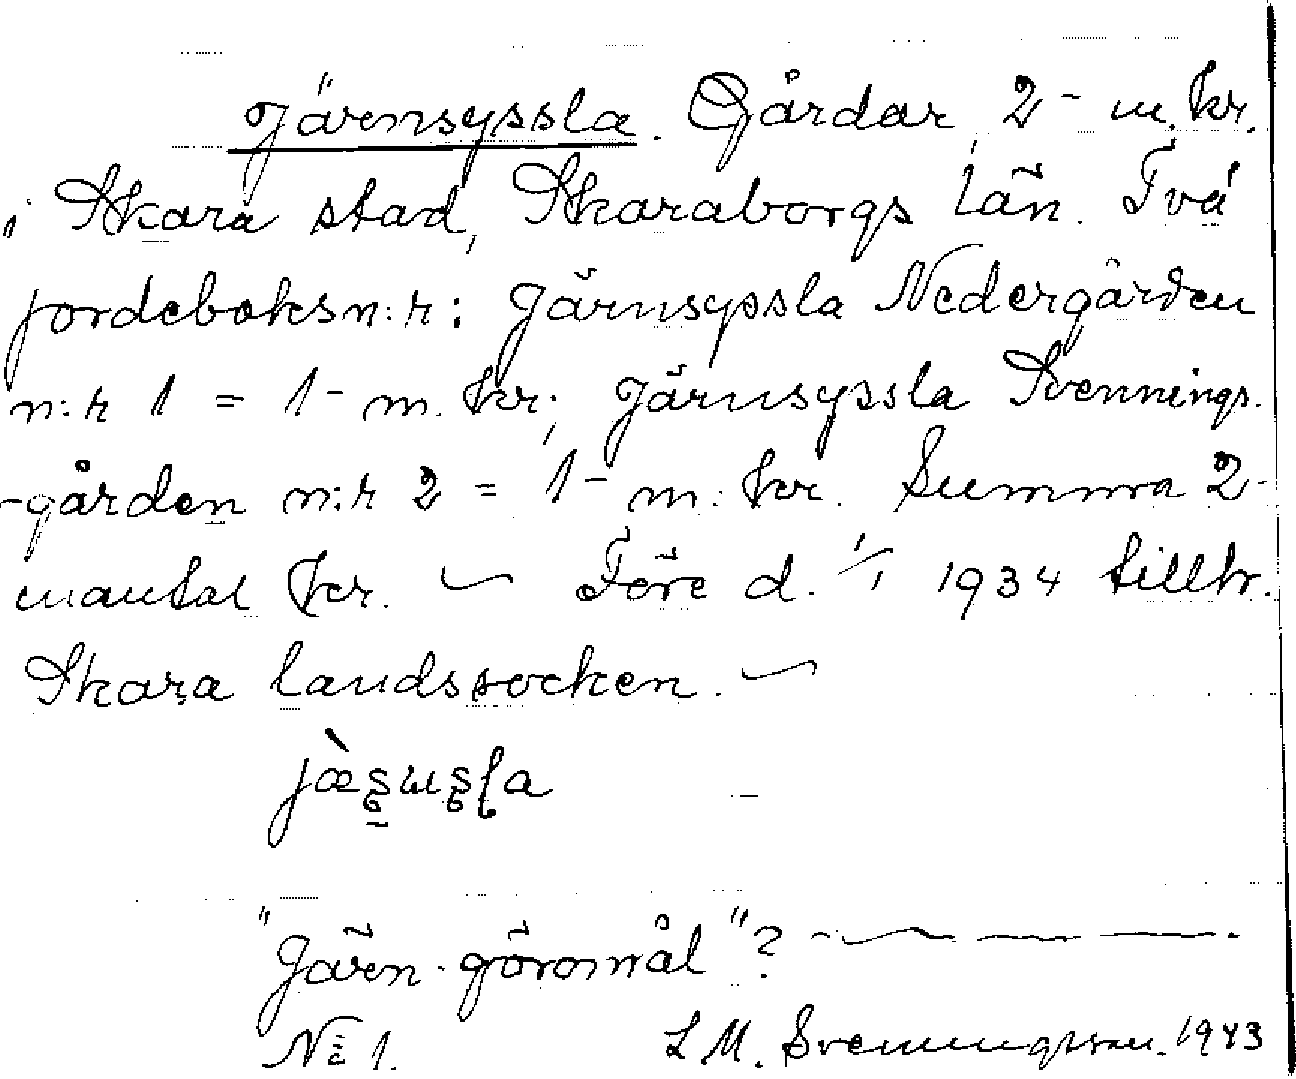 Järnsyssla. Gårdar 2 - m. kr.
i Skara stad, Skaraborgs län. Två
jordeboksn:r: Järnsyssla Nedergården
n:r 1 = 1 - m. kr; Järnsyssla Svennings-
-gården n:r 2 = 1 - m. kr. Summa 2 -
mantal kr. ~ Före d. 1/1 1934 tillhr.
Skara landssocken. ~
"Järn-göromål"?
No 1. L M. Svenungsson. 1943